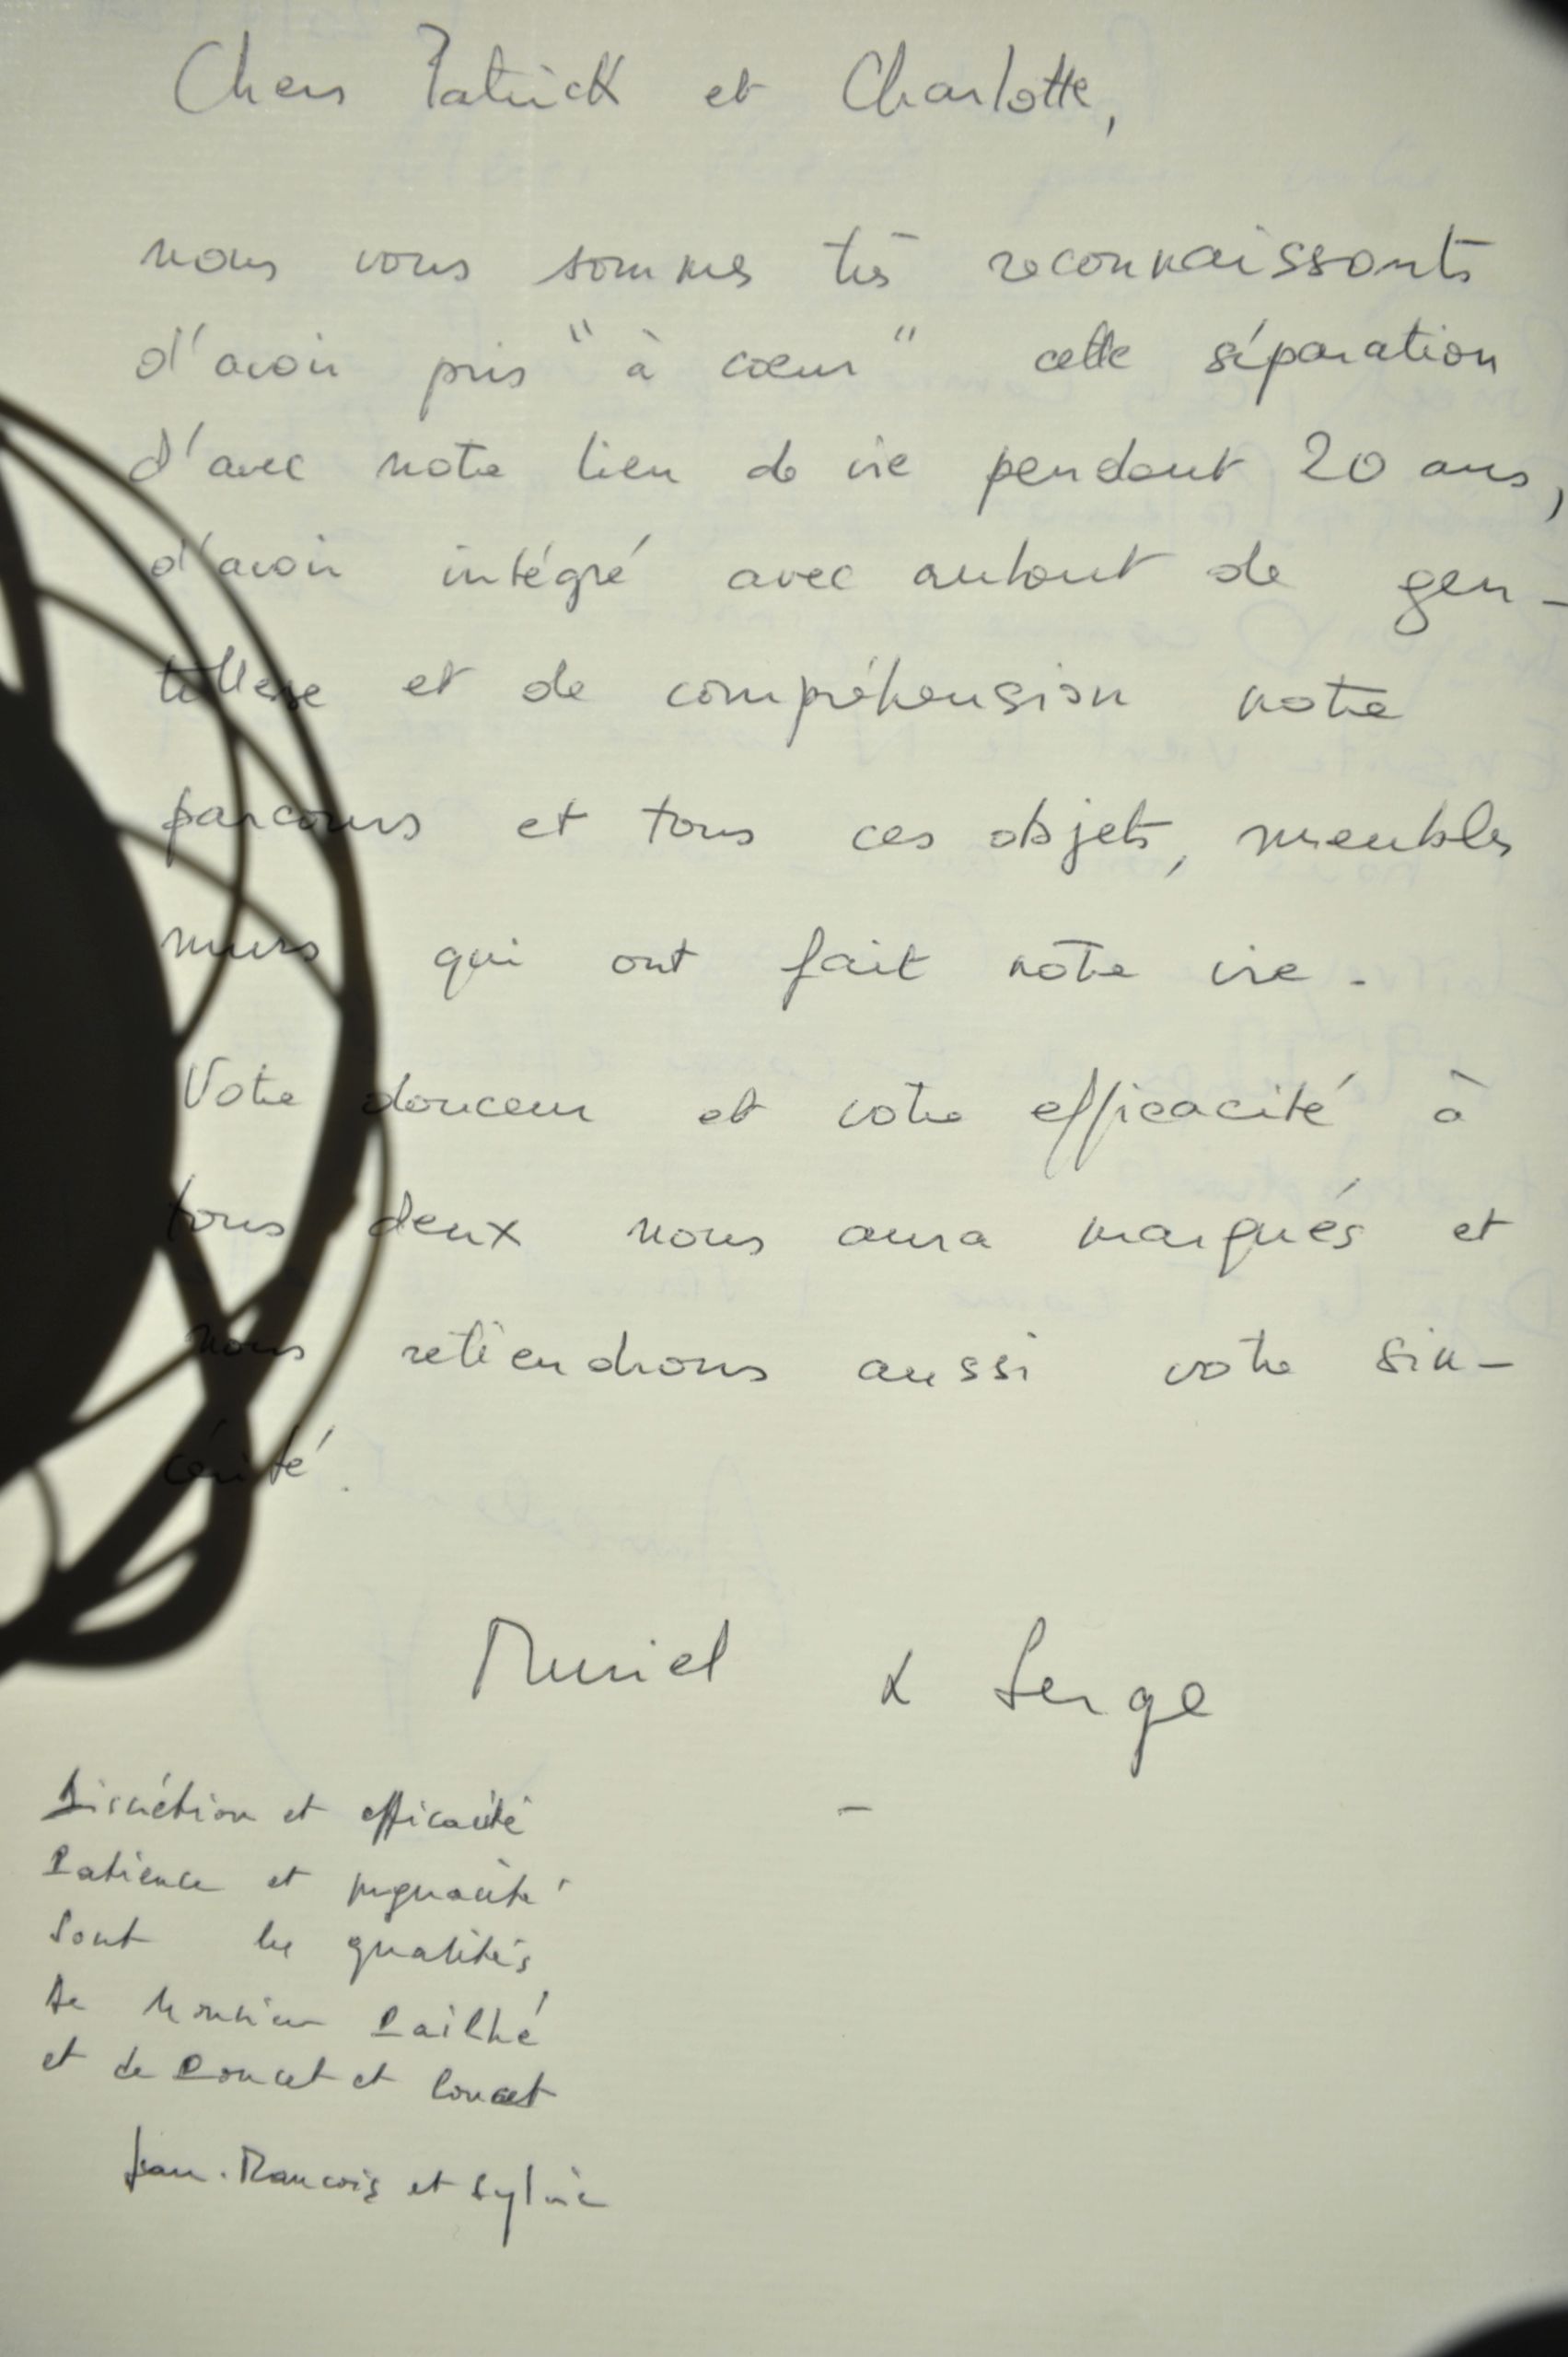 Chers Patrick et Charlotte,
nous vous sommes très reconnaissants
d'avoir pris "à cœur" cette séparation
d'avec notre lieu de vie pendant 20 ans,
d'avoir intégré avec autant de gen-
tillesse et de compréhension notre
parcours et tous ces objets, meubles
murs qui ont fait notre vie.
Votre douceur et votre efficacité à
tous deux nous aura marqués et
nous retiendrons aussi votre sin-
cérité.
Muriel & Serge
Discrétion et efficacité
Patience et pugnacité
Sont les qualités
de Monsieur Pailhé
et de Poncet et Poncet
Jean-François et Sylvie